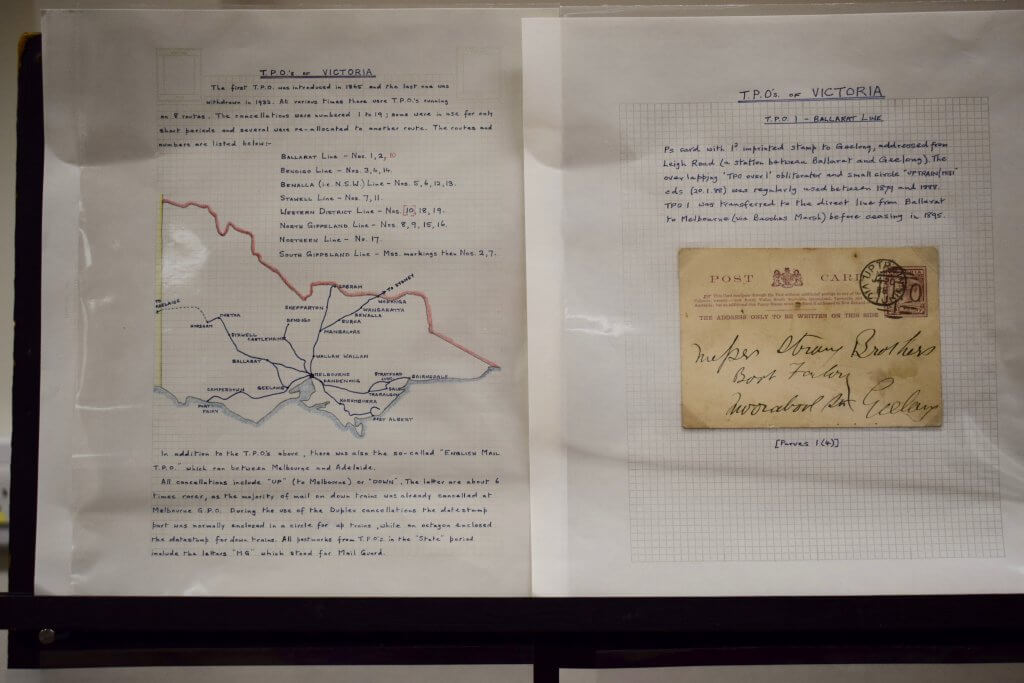 T.P.O.'s OF VICTORIA
The first T.P.O. was introduced in 1865 and the last one was
withdrawn in 1932. At various times there were T.P.O.'s running
on 8 routes. The cancellations were numbered 1 to 19; some were in use for only
short periods and several were re-allocated to another route. The routes and
numbers are listed below:-
BALLARAT LINE - Nos. 1, 2, 10
BENDIGO LINE - Nos. 3, 4, 14.
BENALLA (i.e. N.S.W.) LINE - Nos. 5, 6, 12, 13.
STAWELL LINE - Nos. 7, 11.
WESTERN DISTRICT LINE - Nos. 10, 18, 19.
NORTH GIPPSLAND LINE - Nos. 8, 9, 15, 16.
NORTHERN LINE - No. 17.
SOUTH GIPPSLAND LINE - Mss. markings then Nos. 2, 7.
TO SYDNEY
COBRAM
TO ADELAIDE
WODONGA
SHEPPARTON
WANGARATTA
BENALLA
MURTOA
BENDIGO
EUROA
HORSHAM
MANGALORE
STAWELL
CASTLEMAINE
WALLAN WALLAN
BALLARAT
MELBOURNE
STRATFORD
DANDENONG
BAIRNSDALE
CAMPERDOWN
GEELONG
SALE
TRARALGON
PORT FAIRY
KORUMBURRA
PORT ALBERT
In addition to the T.P.O.'s above, there was also the so-called "ENGLISH MAIL
T.P.O." which ran between Melbourne and Adelaide.
All cancellations include "UP" (to Melbourne) or "DOWN". The latter are about 6
times rarer, as the majority of mail on down trains was already cancelled at
Melbourne G.P.O. During the use of the Duplex cancellations the datestamp
part was normally enclosed in a circle for up trains, while an octagon enclosed
the datestamp for down trains. All postmarks from T.P.O.'s in the "State" period
include the letters "M.G." which stood for Mail Guard.
T.P.O's. OF VICTORIA
T.P.O. 1 - BALLARAT LINE
Ps card with 1d imprinted stamp to Geelong, addressed from
Leigh Road (a station between Ballarat and Geelong). The
overlapping 'TPO over 1' obliterator and small circle 'UPTRAIN/MB1'
cds (20.1.88) was regularly used between 1879 and 1888.
TPO 1 was transferred to the direct line from Ballarat
to Melbourne (via Bacchus Marsh) before ceasing in 1895.
POST CARD
THE ADDRESS ONLY TO BE WRITTEN ON THIS SIDE
Messrs Strong Brothers
Boot Factory
Moorabool St Geelong
[Purves 1(4)]